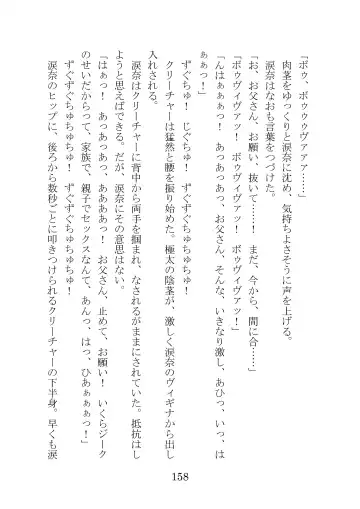 「ボゥ、ボゥゥゥヴァアァ……」
肉茎をゆっくりと涙奈に沈め、気持ちよさそうに声を上げる。
涙奈はなおも言葉をつづけた。
「お、お父さん、お願い、抜いて……！　まだ、今から、間に合……」
「ボゥヴィヴァッ！　ボゥヴィヴァッ！」
「んはぁぁぁっ！　あっあっあっ、お父さん、そんな、いきなり激し、あひっ、いっ、は
ぁぁっ！」
ずぐちゅ！　じぐちゅ！　ずぐずぐちゅちゅちゅ！
クリーチャーは猛然と腰を振り始めた。極太の陰茎が、激しく涙奈のヴィギナから出し
入れされる。
涙奈はクリーチャーに背中から両手を掴まれ、なされるがままにされていた。抵抗はし
ようと思えばできる。だが、涙奈にその意思はない。
「はぁっ！　あっあっあっ、ああああっ！　お父さん、止めて、お願い！　いくらジーク
のせいだからって、家族で、親子でセックスなんて、あんっ、はっ、ひあぁぁぁっ！」
ずぐずぐちゅちゅちゅ！　ずぐずぐちゅちゅちゅ！
涙奈のヒップに、後ろから数秒ごとに叩きつけられるクリーチャーの下半身。早くも涙
158